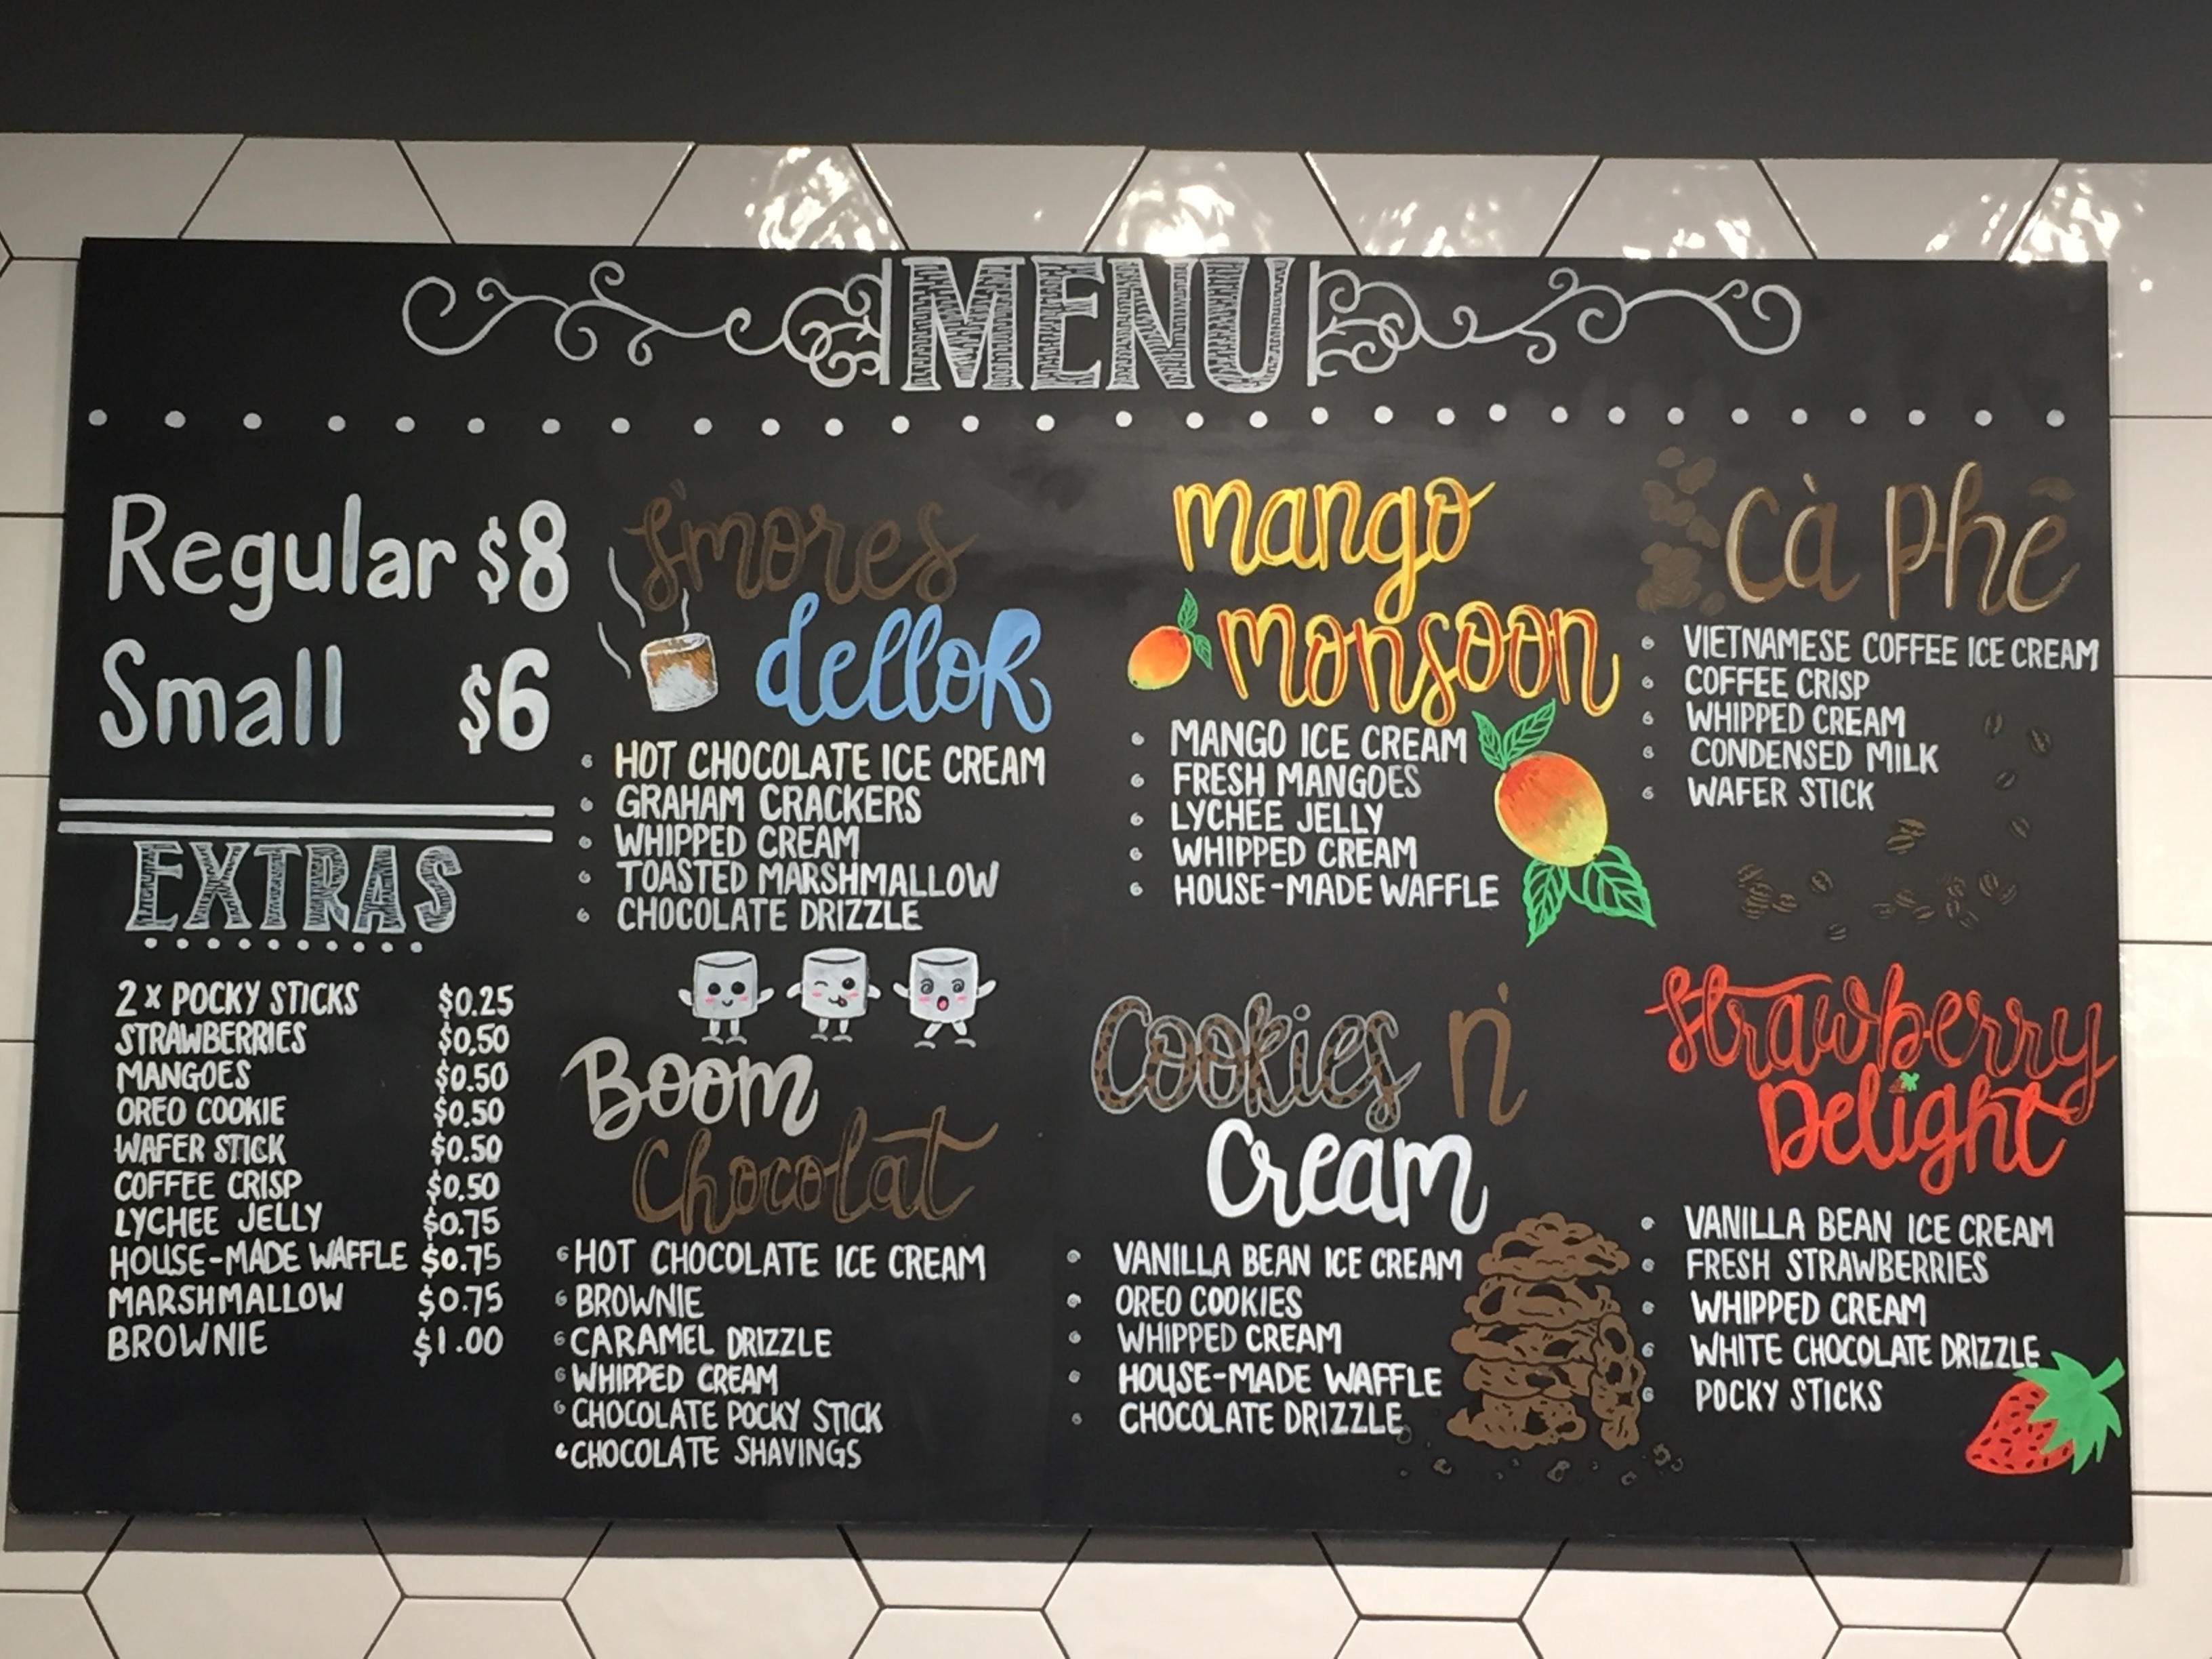 MENU
Regular $8
Small $6
EXTRAS
2 x POCKY STICKS $0.25
STRAWBERRIES $0.50
MANGOES $0.50
OREO COOKIE $0.50
WAFER STICK $0.50
COFFEE CRISP $0.50
LYCHEE JELLY $0.75
HOUSE-MADE WAFFLE $0.75
MARSHMALLOW $0.75
BROWNIE $1.00
s'mores
dellor
HOT CHOCOLATE ICE CREAM
GRAHAM CRACKERS
WHIPPED CREAM
TOASTED MARSHMALLOW
CHOCOLATE DRIZZLE
Boom
Chocolat
HOT CHOCOLATE ICE CREAM
BROWNIE
CARAMEL DRIZZLE
WHIPPED CREAM
CHOCOLATE POCKY STICK
CHOCOLATE SHAVINGS
mango
monsoon
MANGO ICE CREAM
FRESH MANGOES
LYCHEE JELLY
WHIPPED CREAM
HOUSE-MADE WAFFLE
Cookies n'
Cream
VANILLA BEAN ICE CREAM
OREO COOKIES
WHIPPED CREAM
HOUSE-MADE WAFFLE
CHOCOLATE DRIZZLE
Cà Phê
VIETNAMESE COFFEE ICE CREAM
COFFEE CRISP
WHIPPED CREAM
CONDENSED MILK
WAFER STICK
Strawberry
Delight
VANILLA BEAN ICE CREAM
FRESH STRAWBERRIES
WHIPPED CREAM
WHITE CHOCOLATE DRIZZLE
POCKY STICKS